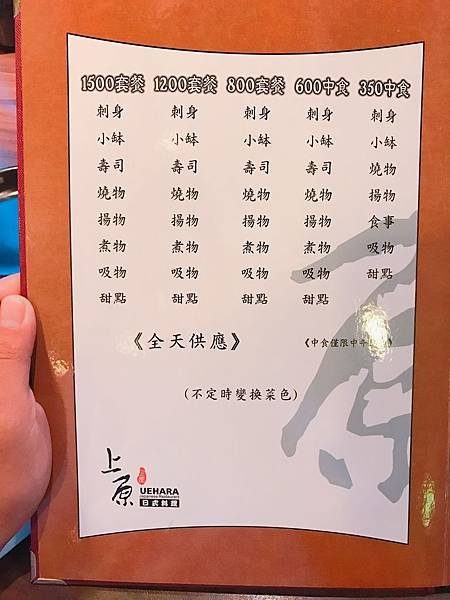 1500套餐 1200套餐 800套餐 600中食 350中食
刺身 刺身 刺身 刺身 刺身
小缽 小缽 小缽 小缽 小缽
壽司 壽司 壽司 壽司 燒物
燒物 燒物 燒物 燒物 揚物
揚物 揚物 揚物 揚物 食事
煮物 煮物 煮物 煮物 吸物
吸物 吸物 吸物 吸物 甜點
甜點 甜點 甜點 甜點
《全天供應》 《中食僅限中午
(不定時變換菜色)
上原
UEHARA
Japanese Restaurant
日虎料理